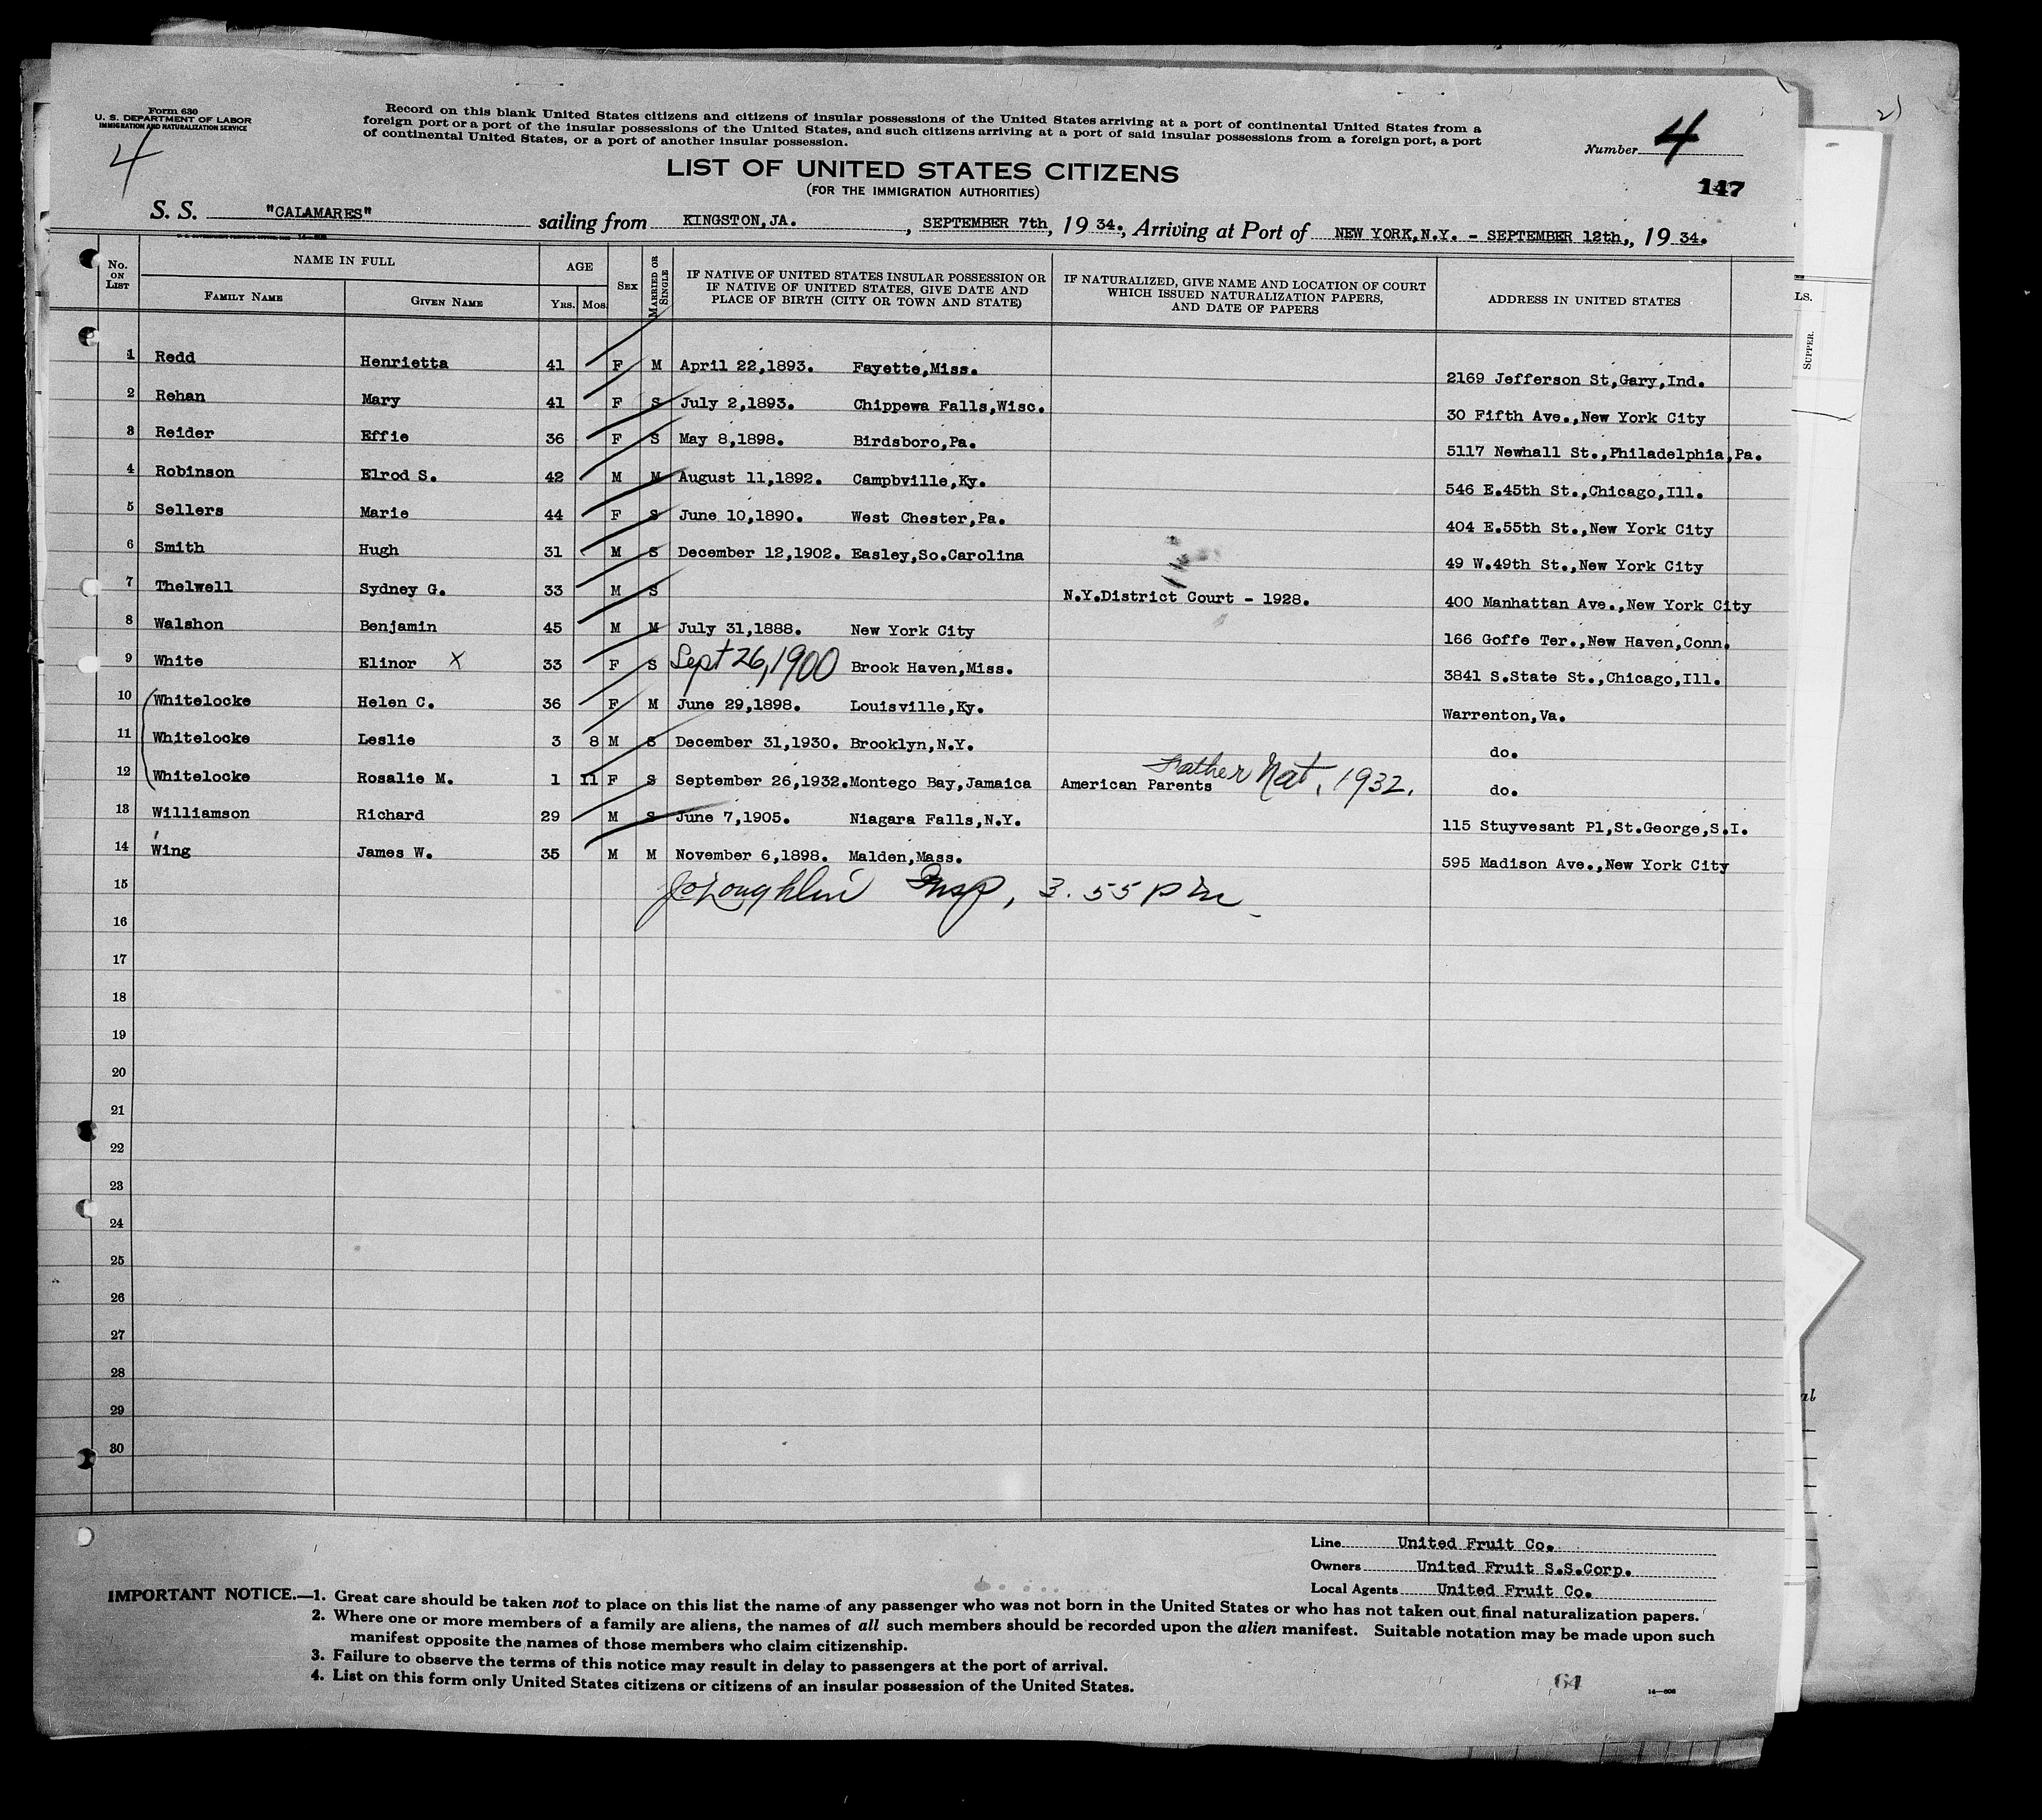 Form 630
U. S. DEPARTMENT OF LABOR
IMMIGRATION AND NATURALIZATION SERVICE
4
Record on this blank United States citizens and citizens of insular possessions of the United States arriving at a port of continental United States from a
foreign port or a port of the insular possessions of the United States, and such citizens arriving at a port of said insular possessions from a foreign port, a port
of continental United States, or a port of another insular possession.
Number 4
LIST OF UNITED STATES CITIZENS
(FOR THE IMMIGRATION AUTHORITIES)
147
S. S. "CALAMARES" sailing from KINGSTON,JA. , SEPTEMBER 7th, 19 34., Arriving at Port of NEW YORK,N.Y. - SEPTEMBER 12th,, 19 34.
No. ON LIST
NAME IN FULL
FAMILY NAME
GIVEN NAME
AGE
YRS. MOS.
SEX
MARRIED OR SINGLE
IF NATIVE OF UNITED STATES INSULAR POSSESSION OR
IF NATIVE OF UNITED STATES, GIVE DATE AND
PLACE OF BIRTH (CITY OR TOWN AND STATE)
IF NATURALIZED, GIVE NAME AND LOCATION OF COURT
WHICH ISSUED NATURALIZATION PAPERS,
AND DATE OF PAPERS
ADDRESS IN UNITED STATES
LS.
SUPPER.
1 Redd Henrietta 41 F M April 22,1893. Fayette,Miss. 2169 Jefferson St,Gary,Ind.
2 Rehan Mary 41 F S July 2,1893. Chippewa Falls,Wisc. 30 Fifth Ave.,New York City
3 Reider Effie 36 F S May 8,1898. Birdsboro,Pa. 5117 Newhall St.,Philadelphia,Pa.
4 Robinson Elrod S. 42 M M August 11,1892. Campbville,Ky. 546 E.45th St.,Chicago,Ill.
5 Sellers Marie 44 F S June 10,1890. West Chester,Pa. 404 E.55th St.,New York City
6 Smith Hugh 31 M S December 12,1902. Easley,So.Carolina 49 W.49th St.,New York City
7 Thelwell Sydney G. 33 M S N.Y.District Court - 1928. 400 Manhattan Ave.,New York City
8 Walshon Benjamin 45 M M July 31,1888. New York City 166 Goffe Ter.,New Haven,Conn.
9 White Elinor X 33 F S Sept 26,1900 Brook Haven,Miss. 3841 S.State St.,Chicago,Ill.
10 Whitelocke Helen C. 36 F M June 29,1898. Louisville,Ky. Warrenton,Va.
11 Whitelocke Leslie 3 8 M S December 31,1930. Brooklyn,N.Y. do.
12 Whitelocke Rosalie M. 1 11 F S September 26,1932.Montego Bay,Jamaica American Parents Father Nat, 1932. do.
13 Williamson Richard 29 M S June 7,1905. Niagara Falls,N.Y. 115 Stuyvesant Pl,St.George,S.I.
14 Wing James W. 35 M M November 6,1898. Malden,Mass. 595 Madison Ave.,New York City
15 JoLoughlin Insp, 3.55 pm
16
17
18
19
20
21
22
23
24
25
26
27
28
29
30
al
Line United Fruit Co.
Owners United Fruit S.S.Corp.
Local Agents United Fruit Co.
IMPORTANT NOTICE.—1. Great care should be taken not to place on this list the name of any passenger who was not born in the United States or who has not taken out final naturalization papers.
2. Where one or more members of a family are aliens, the names of all such members should be recorded upon the alien manifest. Suitable notation may be made upon such
manifest opposite the names of those members who claim citizenship.
3. Failure to observe the terms of this notice may result in delay to passengers at the port of arrival.
4. List on this form only United States citizens or citizens of an insular possession of the United States.
64